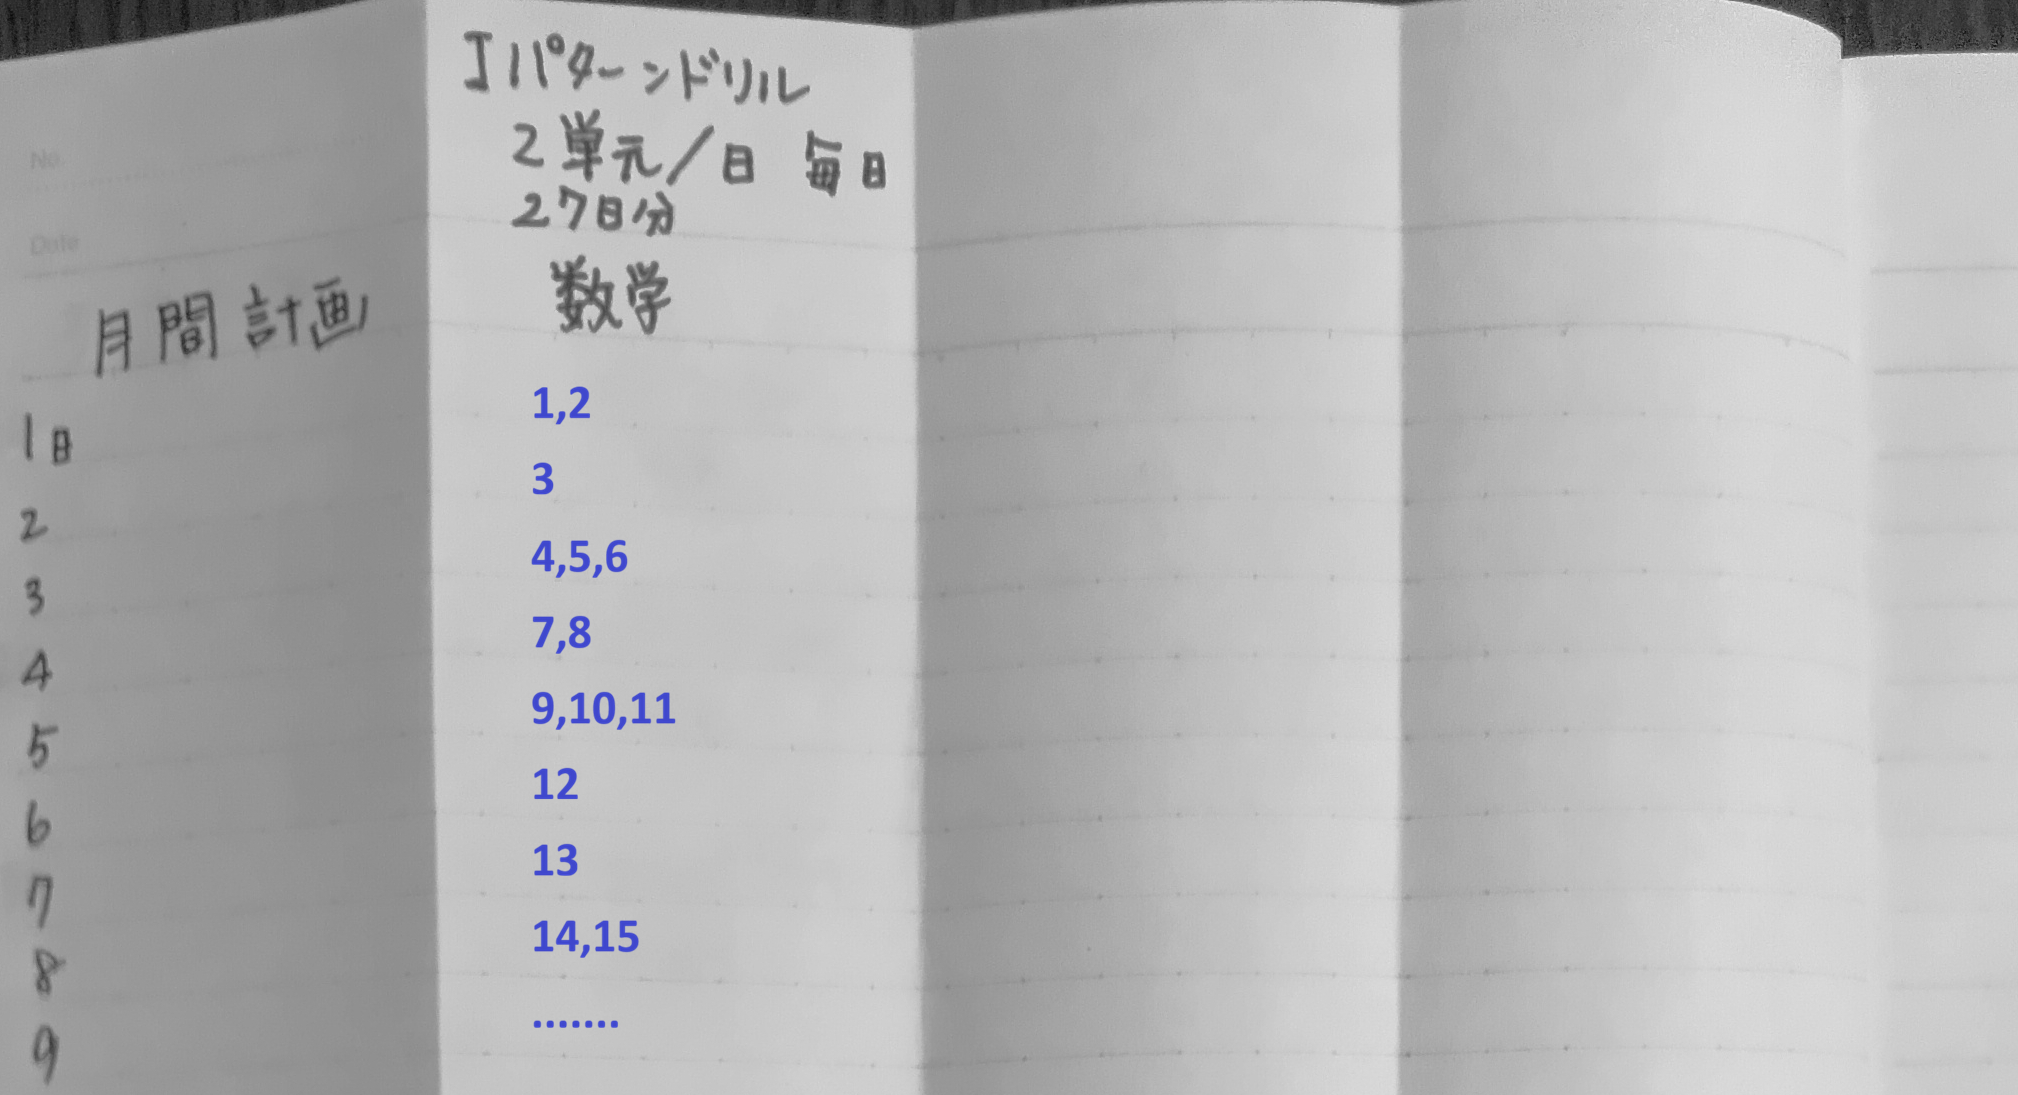 Iパターンドリル
2単元/日 毎日
27日分
数学
No.
Date
月間計画
1日
2
3
4
5
6
7
8
9
1,2
3
4,5,6
7,8
9,10,11
12
13
14,15
.......